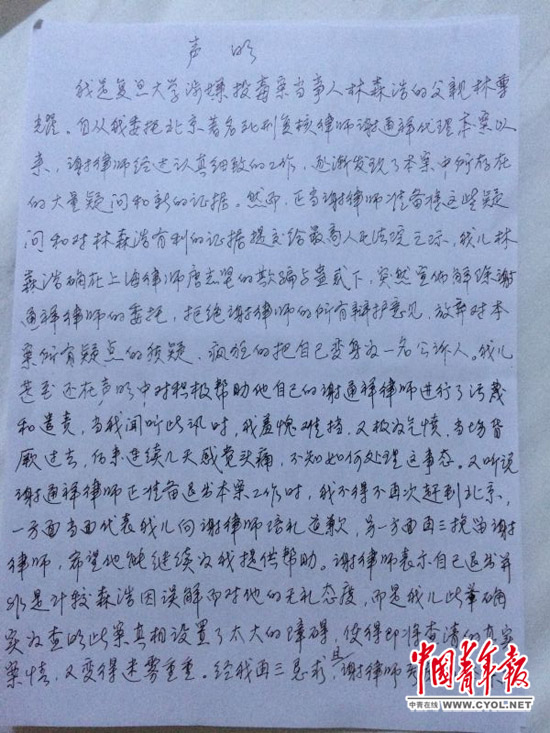 声明
我是复旦大学涉嫌投毒案当事人林森浩的父亲林尊
耀。自从我委托北京著名死刑复核律师谢通祥代理本案以
来，谢律师经过认真细致的工作，逐渐发现了本案中所存在
的大量疑问和新的证据。然而，正当谢律师准备将这些疑
问和对林森浩有利的证据提交给最高人民法院之际，我儿林
森浩确在上海律师唐志坚的欺骗与蛊惑下，突然宣布解除谢
通祥律师的委托，拒绝谢律师的所有辩护意见，放弃对本
案所有疑点的质疑，疯狂的把自己变身为一名公诉人。我儿
甚至还在声明中对积极帮助他自己的谢通祥律师进行了污蔑
和谴责，当我闻听此讯时，我羞愧难挡，又极为气愤，当场昏
厥过去，后来连续几天感觉头痛，不知如何处理这事态。又听说
谢通祥律师正准备退出本案工作时，我不得不再次赶到北京，
一方面当面代表我儿向谢律师赔礼道歉，另一方面再三挽留谢
律师，希望他能继续为我提供帮助。谢律师表示自己退出并
非是计较森浩因误解而对他的无礼态度，而是我儿此举确
实为查明此案真相设置了太大的障碍，使得即将查清的真实
案情，又变得迷雾重重。经我再三恳求，且谢律师
中国青年报
中青在线 WWW.CYOL.NET